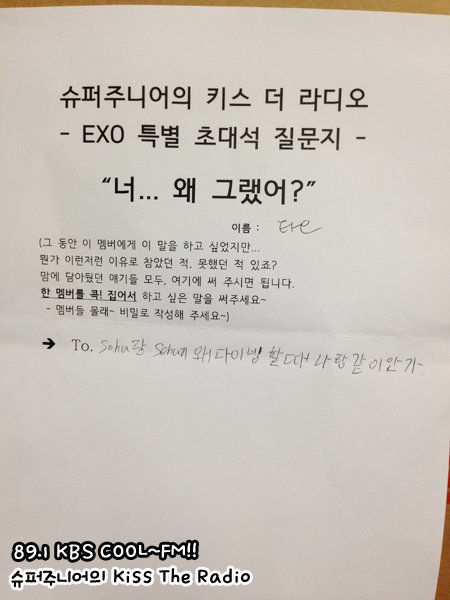 슈퍼주니어의 키스 더 라디오
- EXO 특별 초대석 질문지 -
“너... 왜 그랬어?”
이름 : 타오
(그 동안 이 멤버에게 이 말을 하고 싶었지만...
뭔가 이런저런 이유로 참았던 적, 못했던 적 있죠?
맘에 담아뒀던 얘기들 모두, 여기에 써 주시면 됩니다.
한 멤버를 콕! 집어서 하고 싶은 말을 써주세요~
- 멤버들 몰래~ 비밀로 작성해 주세요~)
➔ To. Sohu랑 Sehun 왜 다이빙 할때 나랑 같이 안 가
89.1 KBS COOL~FM!!
슈퍼주니어의 Kiss The Radio